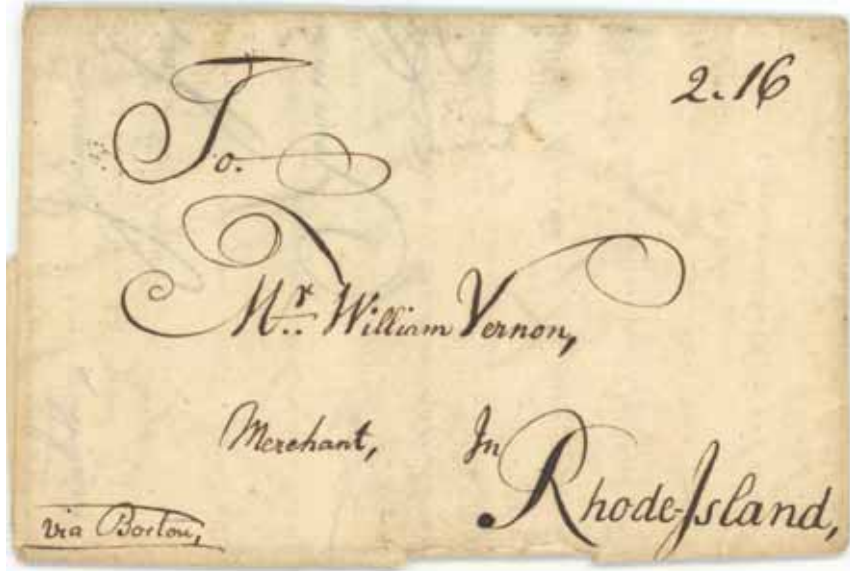 2.16
To.
Mr. William Vernon,
Merchant, In
Rhode-Island,
via Boston,